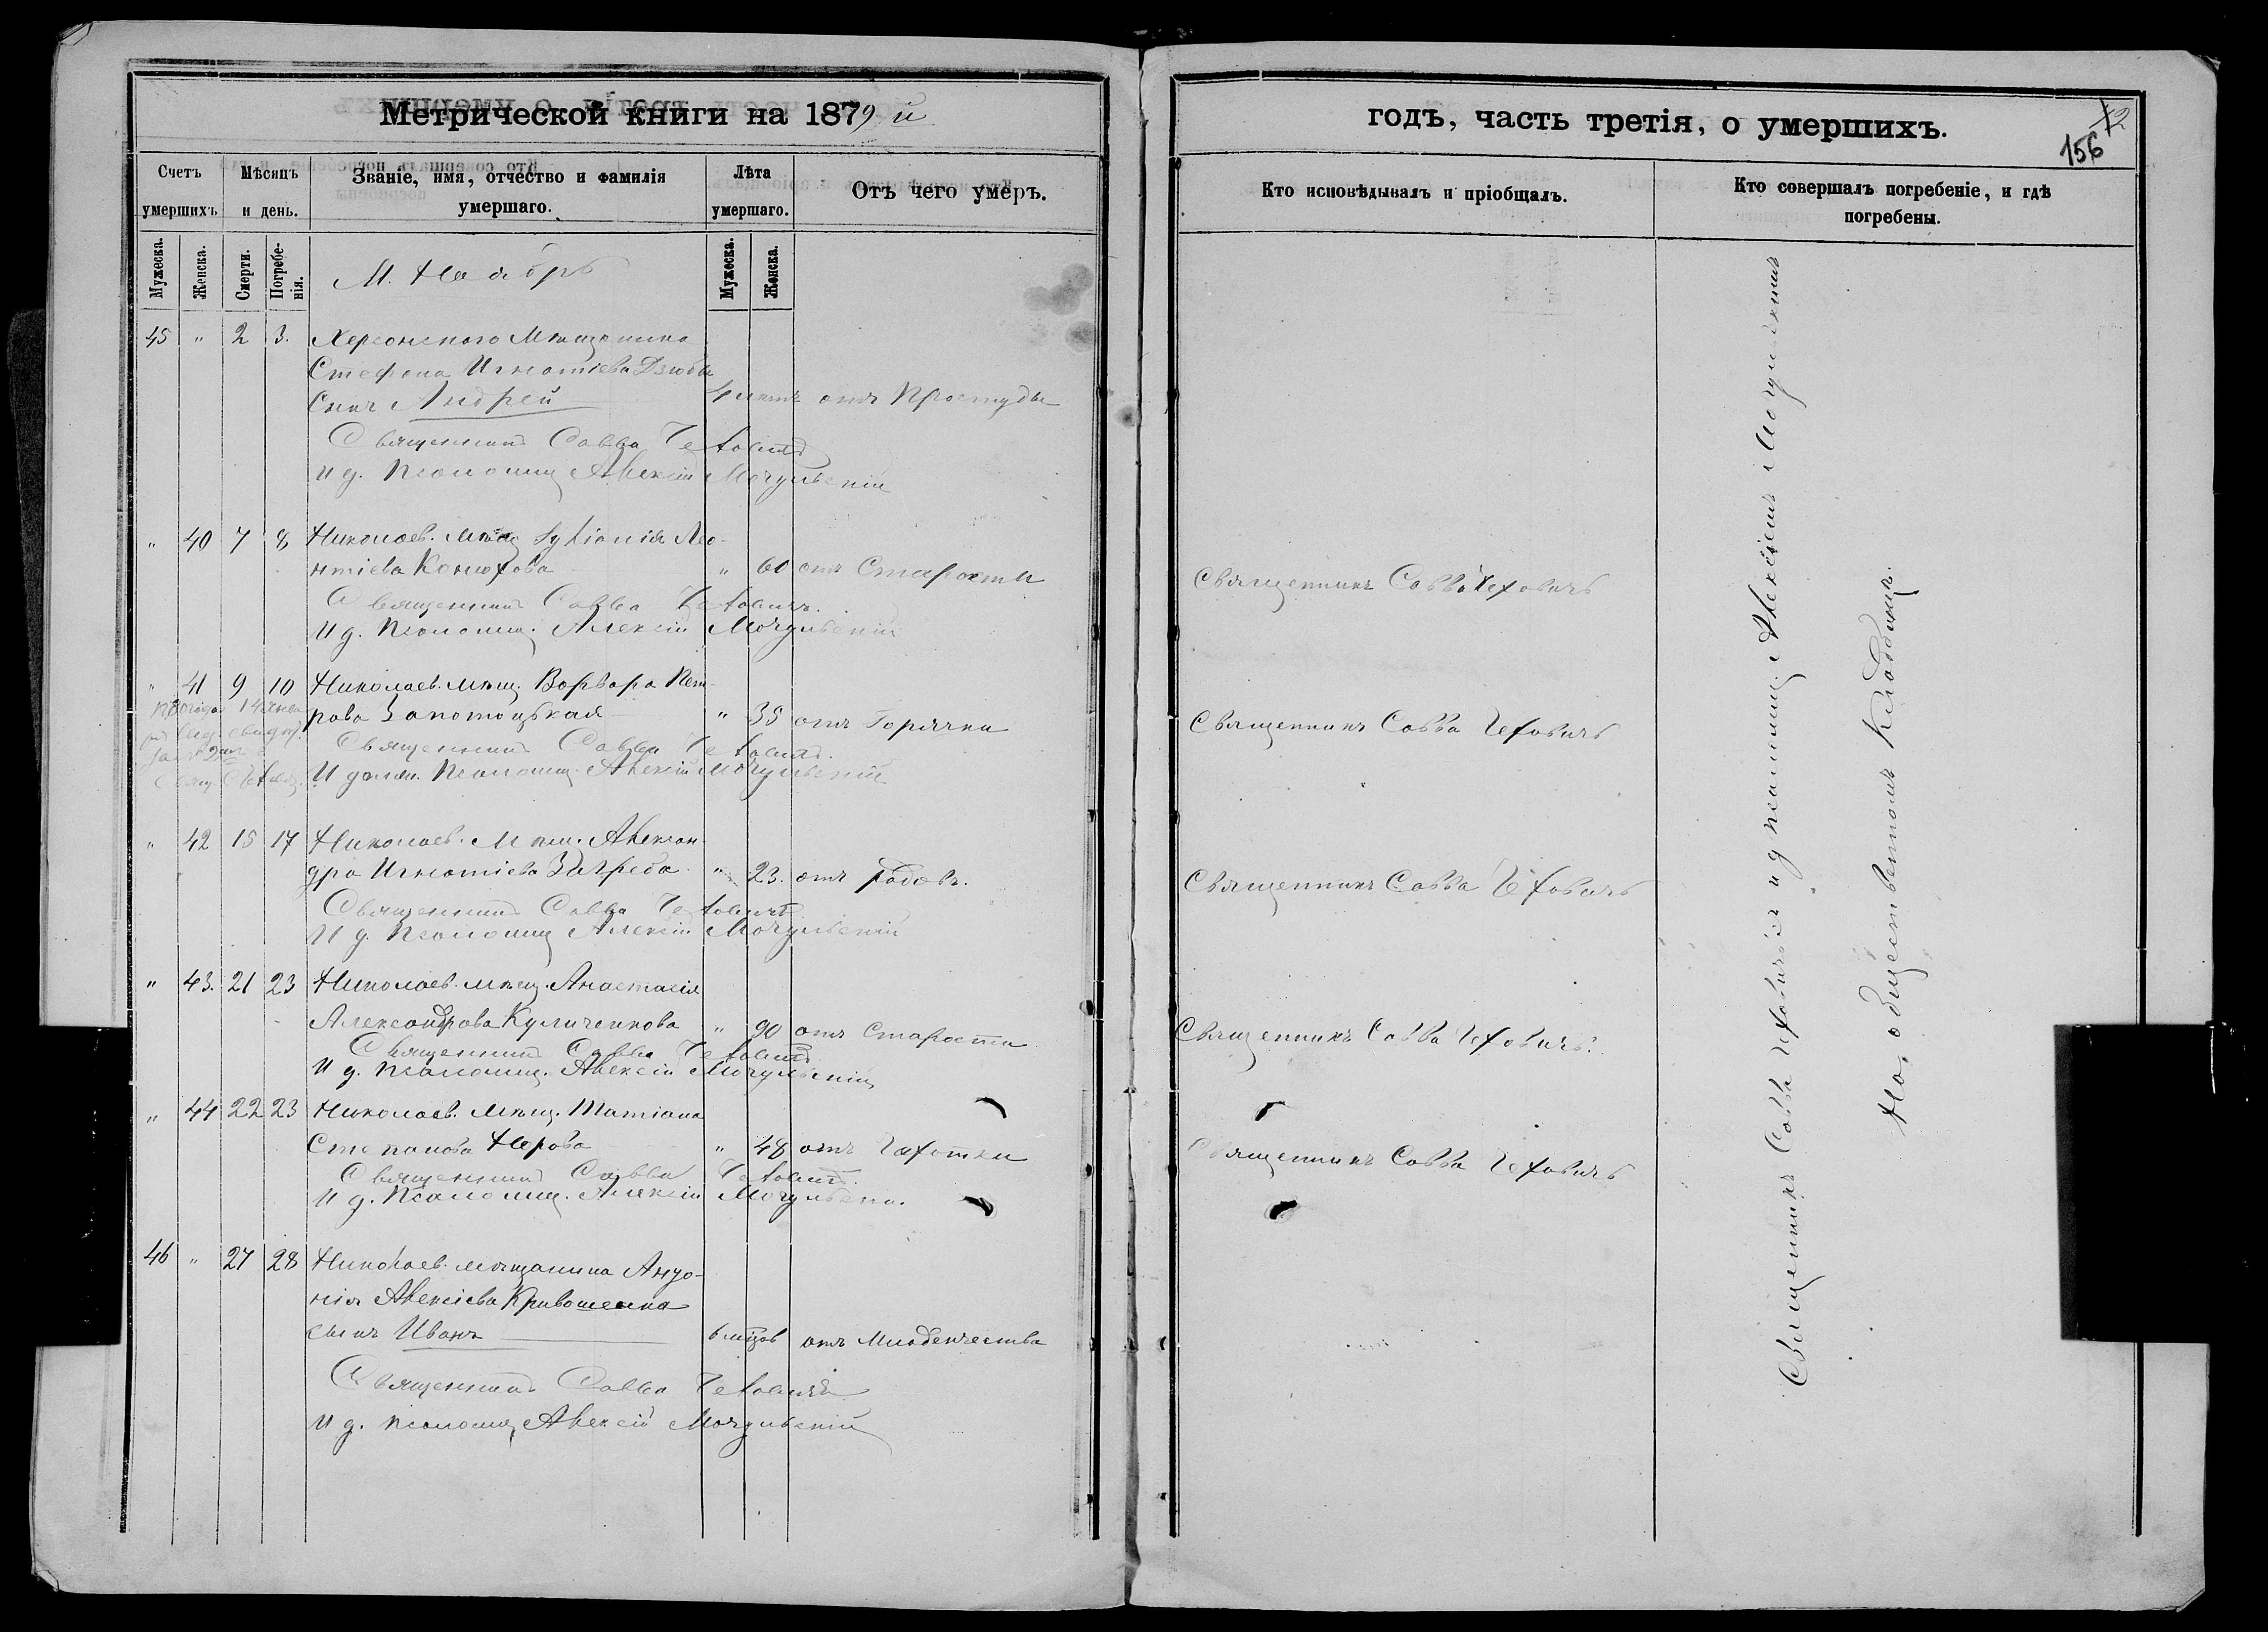 Метрической книги на 1879 й
годъ, часть третія, о умершихъ.
156
Счетъ умершихъ
Мѣсяцъ и день.
Званіе, имя, отчество и фамилія умершаго.
Лѣта умершаго.
Отъ чего умеръ.
Кто исповѣдывалъ и пріобщалъ.
Кто совершалъ погребеніе, и гдѣ погребены.
Мужеска.
Женска.
Смерти.
Погребенія.
Мужеска.
Женска.
М. Ноябрь
45 " 2 3. Херсонскаго Мѣщанина
Стефана Игнатіева Дзюбы
Сынъ Андрей 4 лѣтъ отъ Простуды
Священникъ Савва Чеховичъ
И д. Псаломщ Алексій Мочульскій
" 40 7 8 Николаев. мѣщ Леонтіева Конюхова " 60 отъ Старости Священникъ Савва Чеховичъ
Священникъ Савва Чеховичъ.
И д. Псаломщ. Алексій Мочульскій
" 41 9 10 Николаев. мѣщ. Варвара Пет-
рова Запотоцькая " 35 отъ Горячки Священникъ Савва Чеховичъ
Священникъ Савва Чеховичъ.
И долж. Псаломщ. Алексій Мочульскій
" 42 15 17 Николаев. Мѣщ. Алексан-
дра Игнатіева Загреба " 23. отъ Родовъ. Священникъ Савва Чеховичъ
Священникъ Савва Чеховичъ
И д. Псаломщ Алексій Мочульскій
" 43. 21 23 Николаев. мѣщ. Анастасія
Александрова Куличенкова " 90 отъ Старости Священникъ Савва Чеховичъ.
Священникъ Савва Чеховичъ
И д. Псаломщ. Алексій Мочульскій
" 44 22 23 Николаев. мѣщ. Татіана
Степанова Нерова " 48 отъ Чахотки Священникъ Савва Чеховичъ
Священникъ Савва Чеховичъ.
И д. Псаломщ. Алексій Мочульскій.
46 " 27 28 Николаев. мѣщанина Анто-
нія Алексіева Кривошеина
сынъ Иванъ 6 мѣсцов отъ Младенчества
Священникъ Савва Чеховичъ
И д. псаломщ Алексій Мочульскій
Священникъ Савва Чеховичъ и д псаломщ. Алексѣемъ Мочульскимъ
На общественномъ Кладбищѣ.